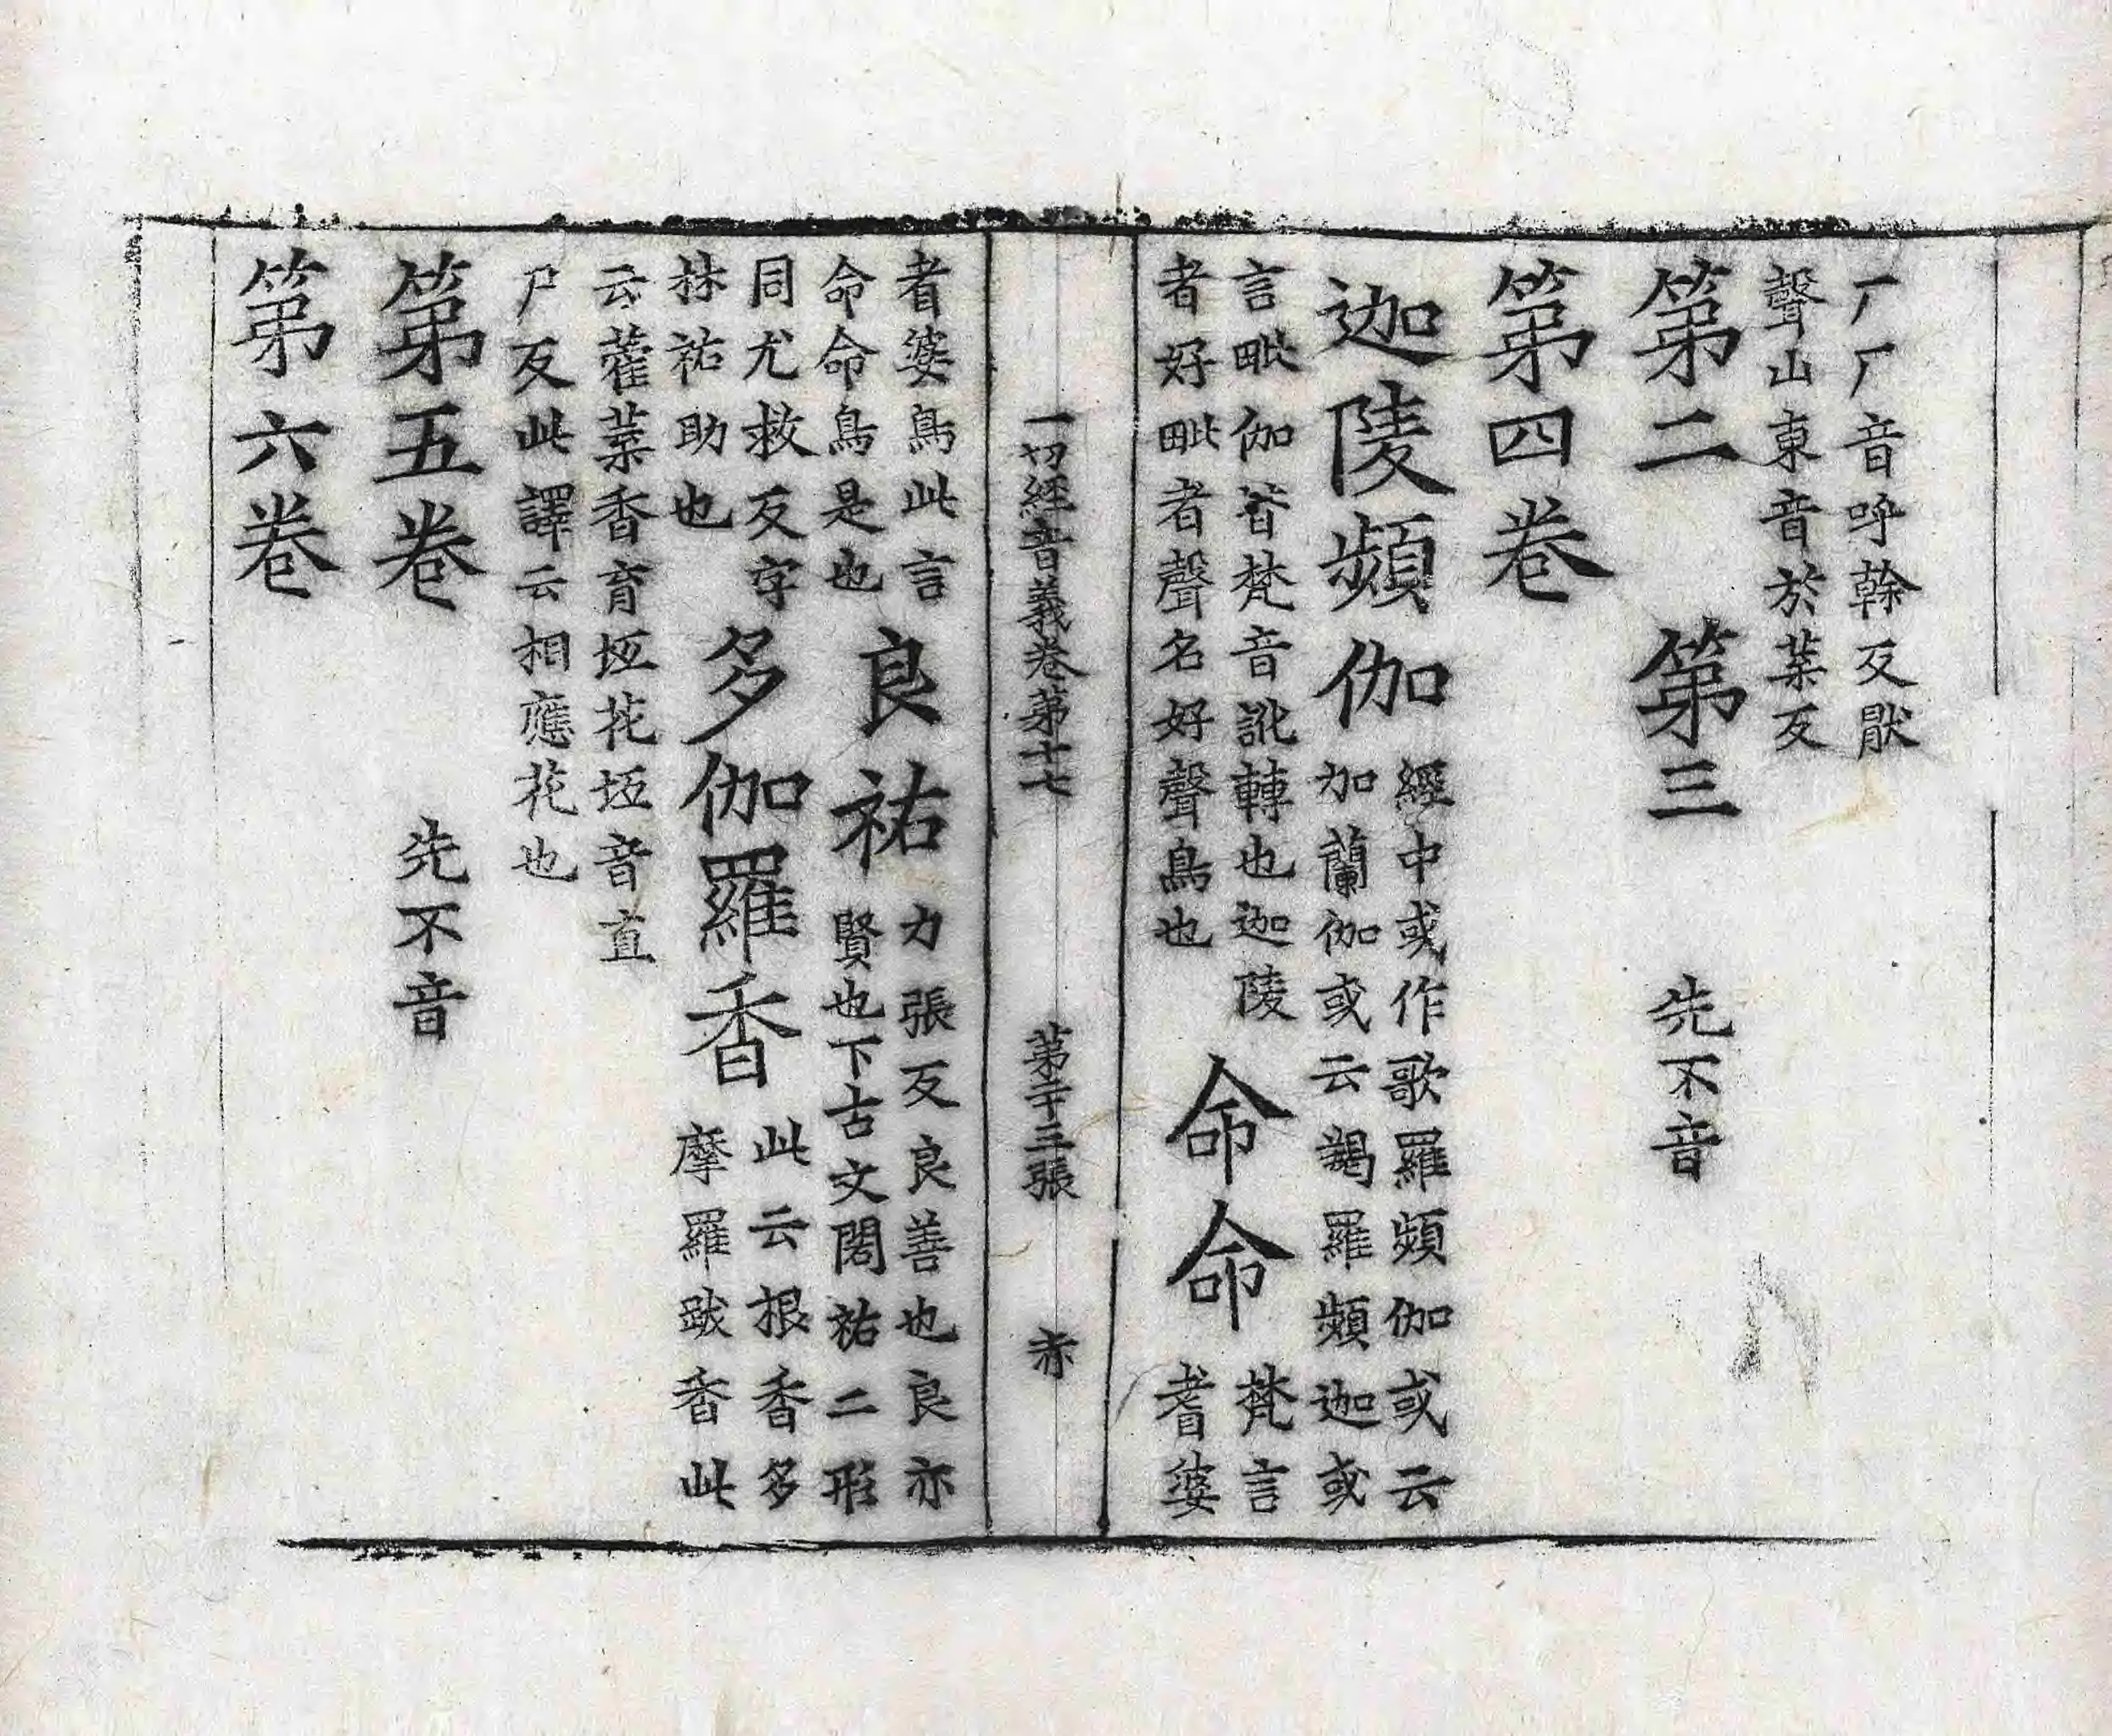 厂厂音呼幹反猒
聲山東音於葉反
第二　第三　先不音
第四卷
迦陵頻伽
經中或作歌羅頻伽或云
加蘭伽或云羯羅頻迦或
言毗伽皆梵音訛轉也迦陵
者好毗者聲名好聲鳥也
命命
梵言
耆婆
一切經音義卷第十七　第二十三張　赤
者婆鳥此言
命命鳥是也
良祐
力張反良善也良亦
賢也下古文閎祐二形
同尤救反字
林祐助也
多伽羅香
此云根香多
摩羅跋香此
云藿葉香育坻花坻音直
尸反此譯云相應花也
第五卷　先不音
第六卷